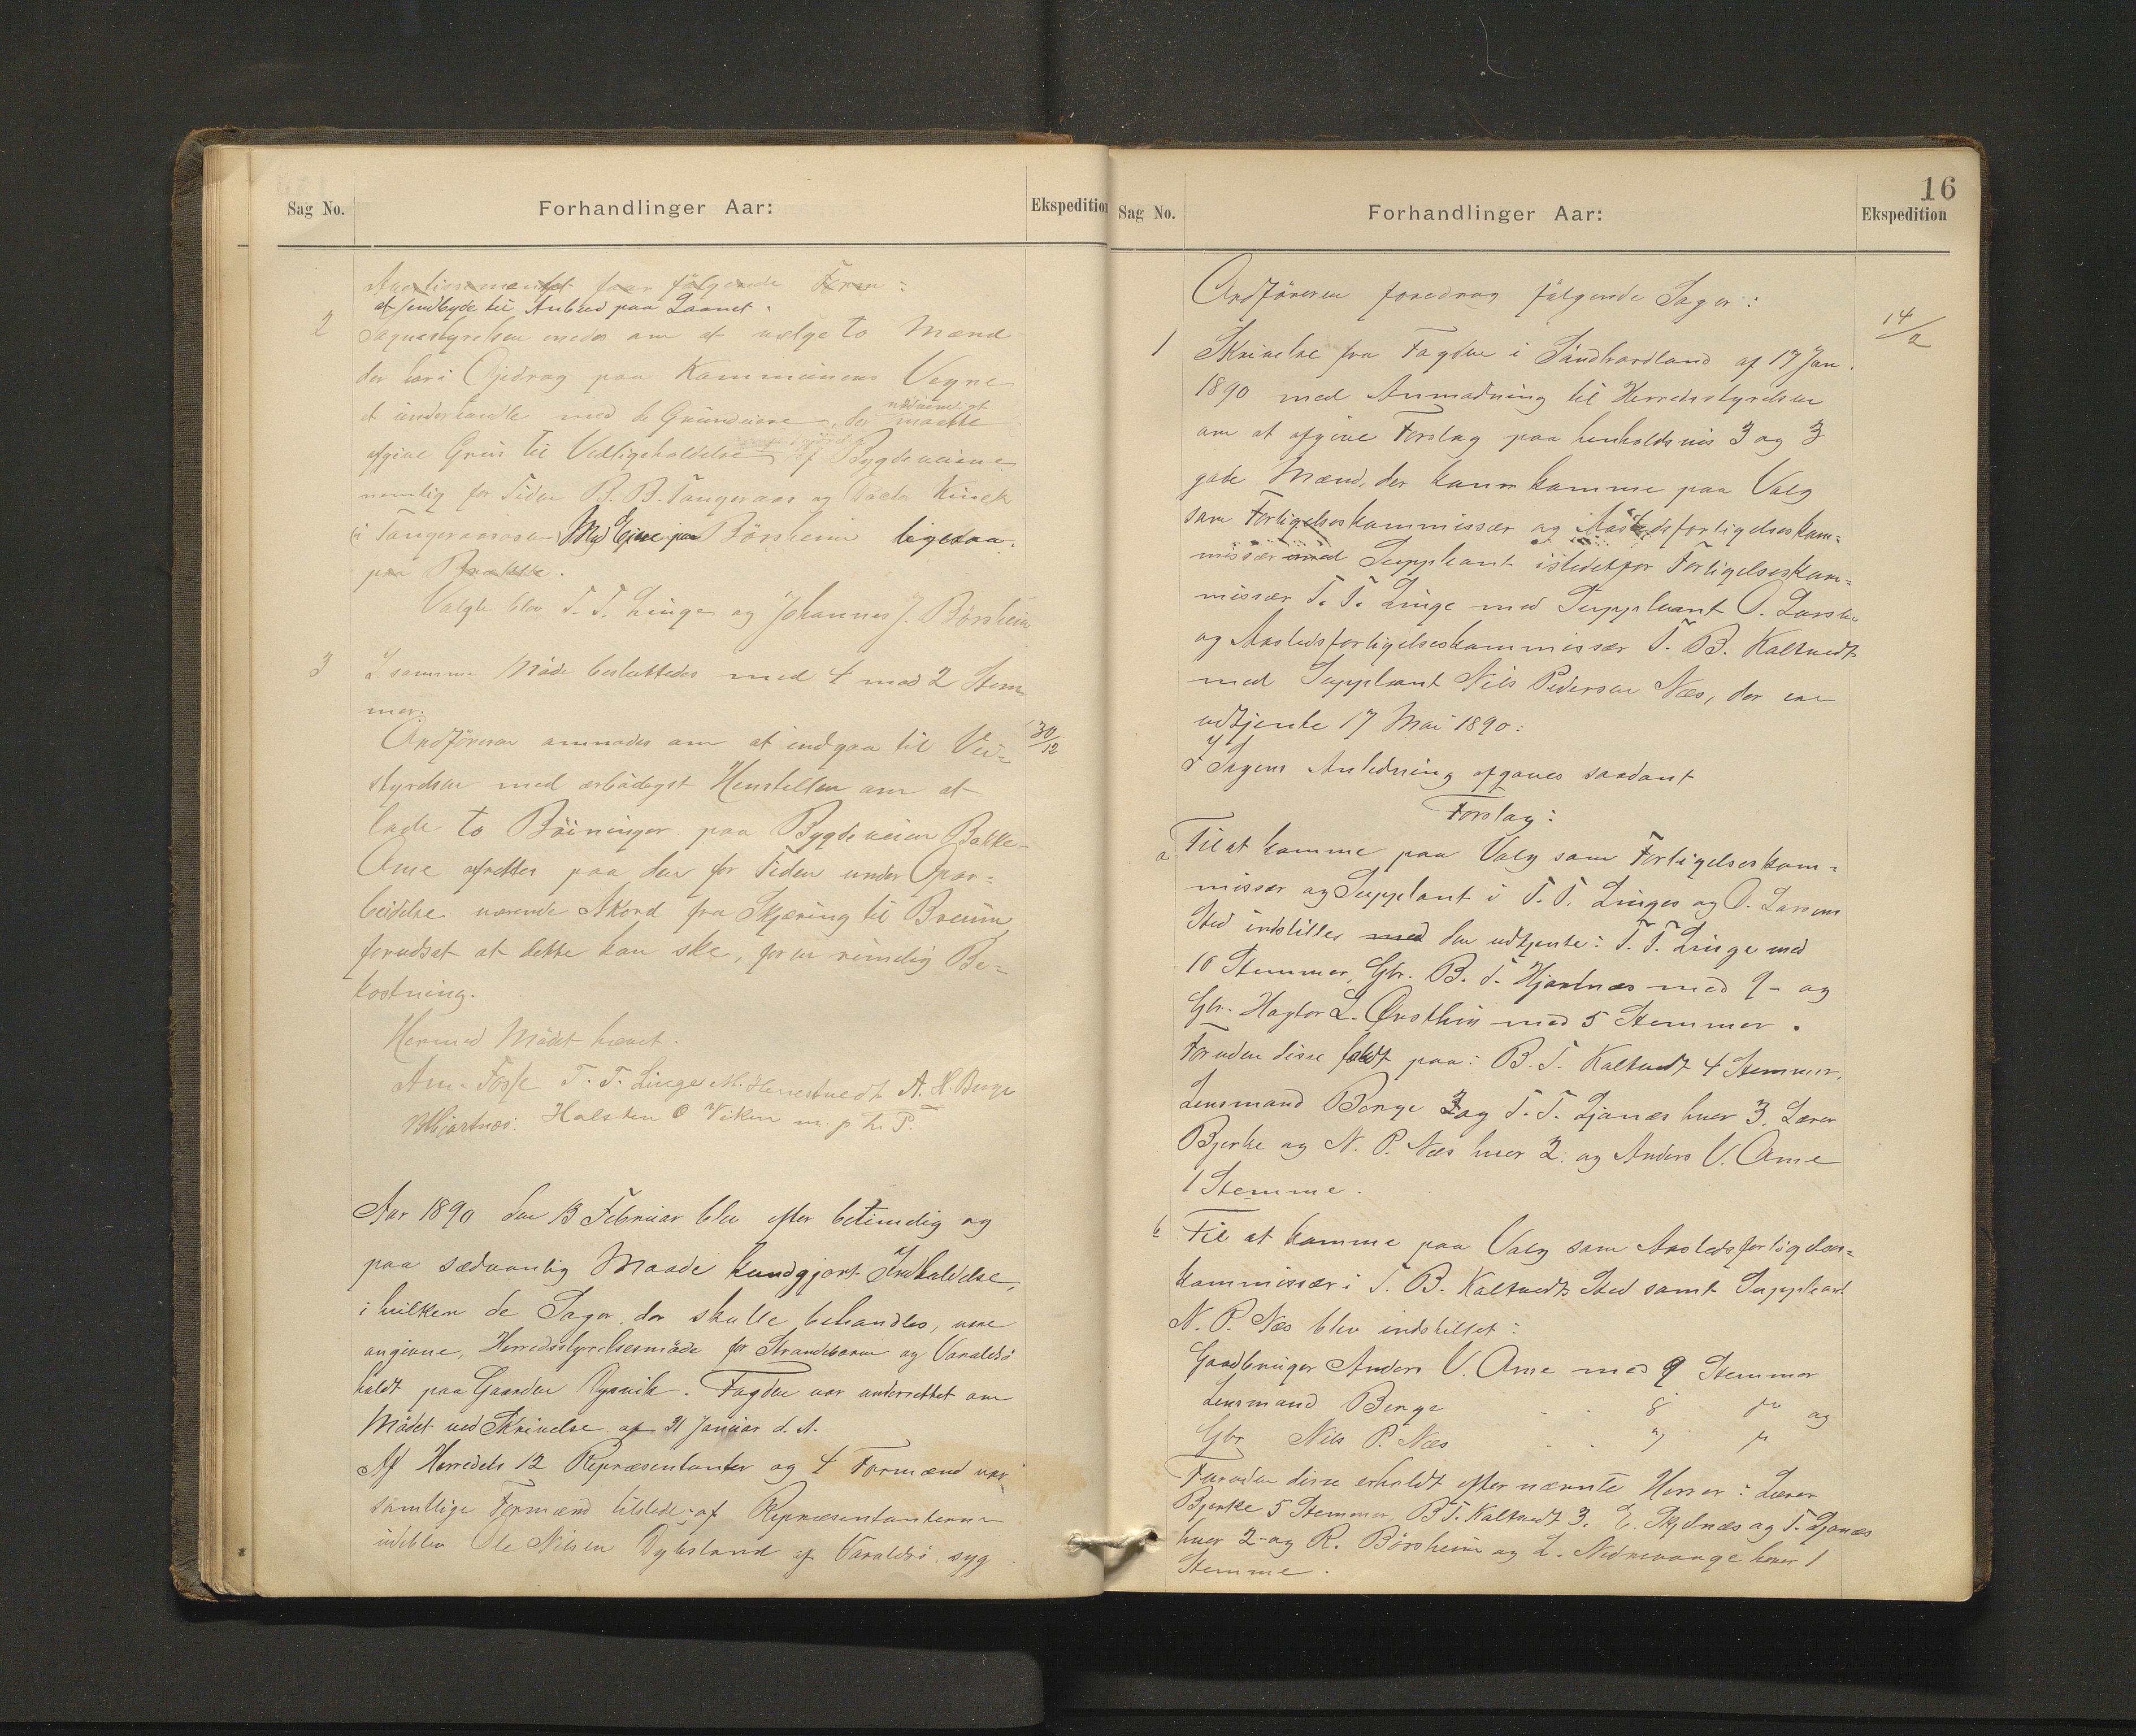 Sag No.
Forhandlinger Aar:
Ekspedition
Avertissementet faar følgende Form:
at indbyde til Anbud paa Laanet.
2
Sognestyrelsen enedes om at vælge to Mænd
der har i Opdrag paa Kommunens Vegne
nødvendigt
at underhandle med de Grundeiere, der maatte
afgive Grus til Vedligeholdelse af Bygdeveiene
nemlig for Tiden B. B. Tangeraas og Kinck
(i Tangeraasen) Med Eiere paa Börsheim ligesaa.
paa Brække.
Valgte blev T. T. Linge og Johannes J. Börsheim
3
I samme Möde besluttedes med 4 mod 2 Stem
mer.
Ordföreren anmodes om at indgaa til Vei-
30/12
styrelsen med ærbödigst Henstillen om at
lade to Böininger paa Bygdeveien Bakke-
Ome afrettes paa den for Tiden under Opar-
beidelse værende Akord fra Skjæring til Breum,
forudsat at dette kan ske, for en rimelig Be-
kostning.
Hermed Mödet hævet.
Am. Fosse T. T. Linge M. Henestvedt A. H. Berge
B Hjartnæs. Halsten O Viken m. p. h. P.
Aar 1890 den 13 Februar blev efter betimelig og
paa sædvanlig Maade kundgjort Indkaldelse,
i hvilken de Sager, der skulle behandles, vare
angivne, Herredsstyrelsesmöde for Strandebarm og Varaldsö
holdt paa Gaarden Dysvik. Fogden var underrettet om
Mödet ved Skrivelse af 31 Januar d. A.
Af Herredets 12 Repræsentanter og 4 Formænd var
samtlige Formænd tilstede; af Repræsentanterne
udeblev Ole Nilsen Dybsland af Varaldsö, syg.
16
Sag No.
Forhandlinger Aar:
Ekspedition
Ordföreren foredrog fölgende Sager:
14/2
1
Skrivelse fra Fogden i Söndhordland af 17 Jan.
1890 med Anmodning til Herredsstyrelsen
om at afgive Forslag paa henholdsvis 3 og 3
gode Mænd, der kan komme paa Valg
som Forligelseskommissær og Aastedsforligelseskom-
missær med Suppleant istedetfor Forligelseskom-
missær T. T. Linge med Suppleant O. Larsen
og Aastedsforligelseskommissær T. B. Kaltvedt
med Suppleant Nils Pedersen Næs, der ere
udtjente 17 Mai 1890:
I Sagens Anledning afgaves saadant
Forslag:
a
Til at komme paa Valg som Forligelseskom-
missær og Suppleant i T. T. Linges og O. Larsens
Sted indstilles med den udtjente: T. T. Linge med
10 Stemmer, Gbr. B. T. Hjartnæs med 9 - og
Gbr. Hagtor L. Øvsthus med 5 Stemmer.
Foruden disse faldt paa: B. T. Kaltvedt 4 Stemmer,
Lensmand Berge 3 og T. T. Ljones hver 3, Lærer
Bjerke og N. P. Næs hver 2 og Anders V. Ome
1 Stemme.
b
Til at komme paa Valg som Aastedsforligelses-
kommissær i T. B. Kaltvedts Sted samt Suppleant
N. P. Næs blev indstillet:
Gaardbruger Anders V. Ome med 9 Stemmer
Lensmand Berge - - 8 do og
Gbr Nils P. Næs - - 7 do
Foruden disse erholdt efternævnte Herrer: Lærer
Bjerke 5 Stemmer, B T. Kaltvedt 3. E. Skjelnæs og T. Ljones
hver 2 - og R. Börsheim og L. Nedrevaage hver 1
Stemme.